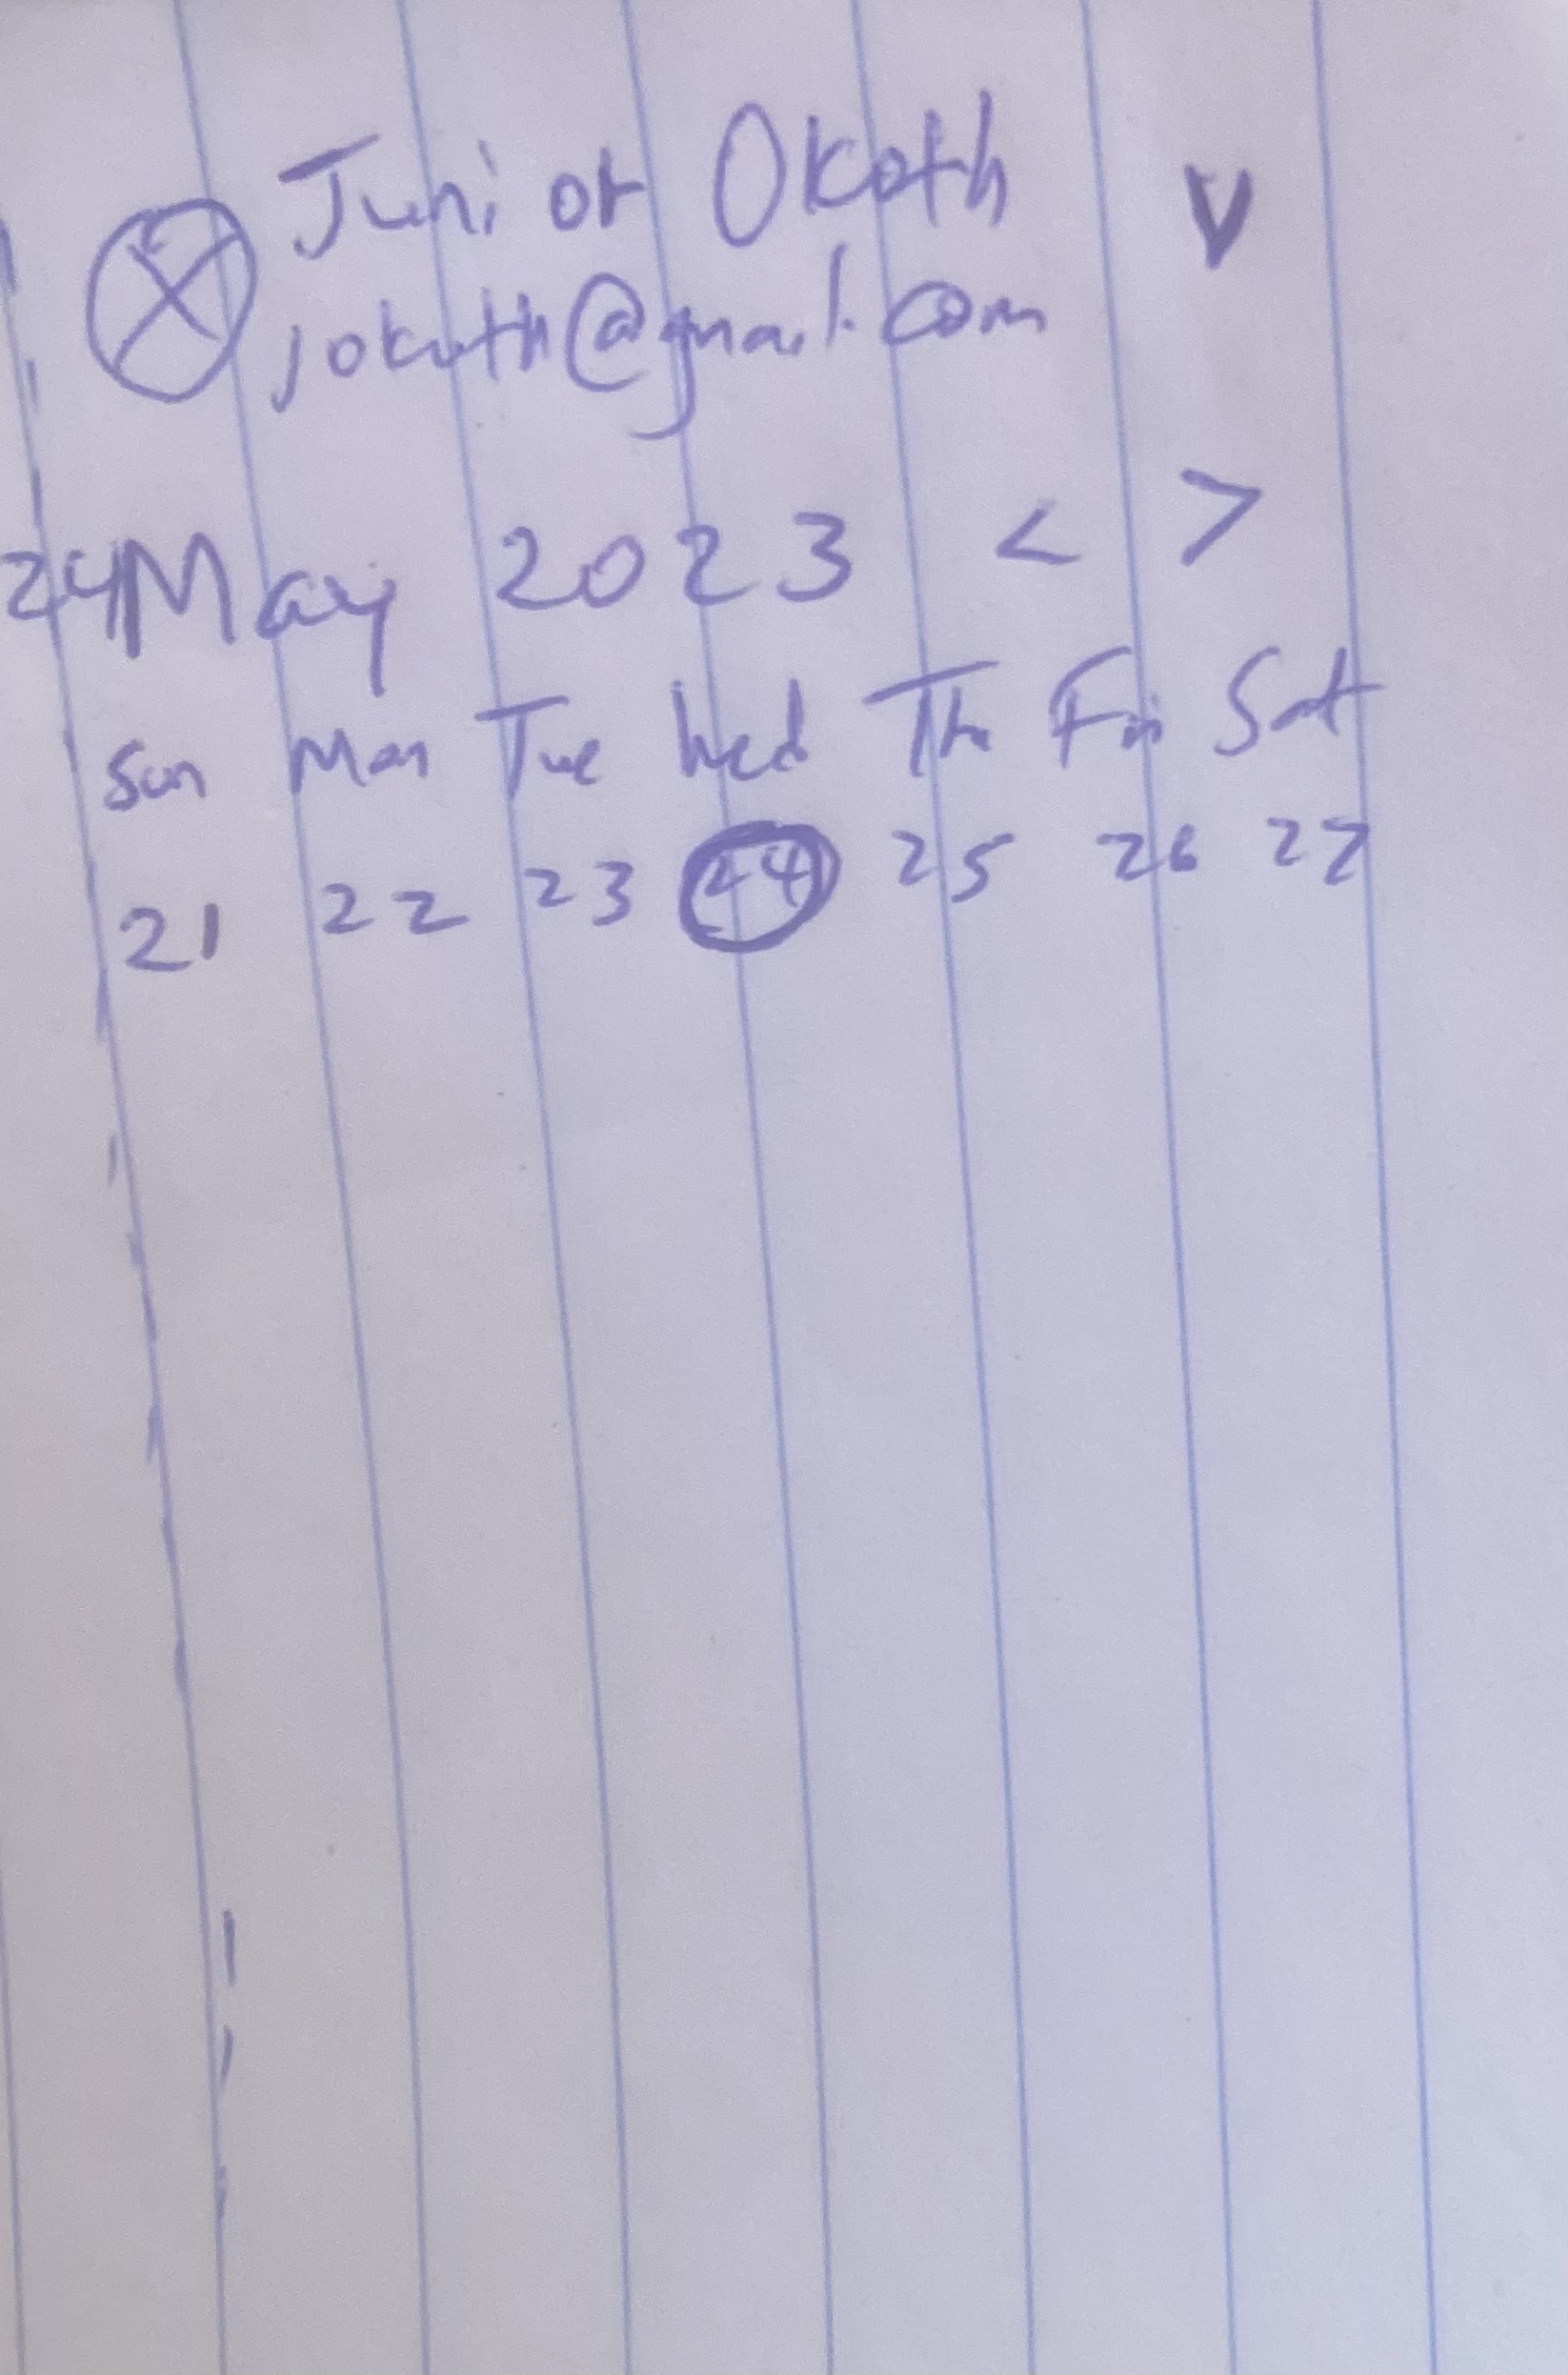 Junior Okoth V
jokoth@gmail.com
24 May 2023 < >
Sun Mon Tue Wed Thu Fri Sat
21 22 23 24 25 26 27